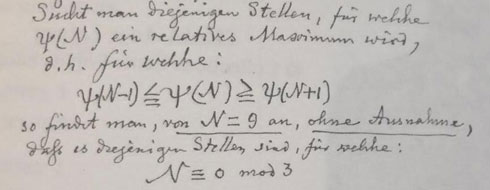 Sucht man diejenigen Stellen, für welche
ψ(N) ein relatives Maximum wird,
d.h. für welche:
ψ(N-1) ≦ ψ(N) ≧ ψ(N+1)
so findet man, von N = 9 an, ohne Ausnahme,
daſs es diejenigen Stellen sind, für welche:
N ≡ 0 mod 3